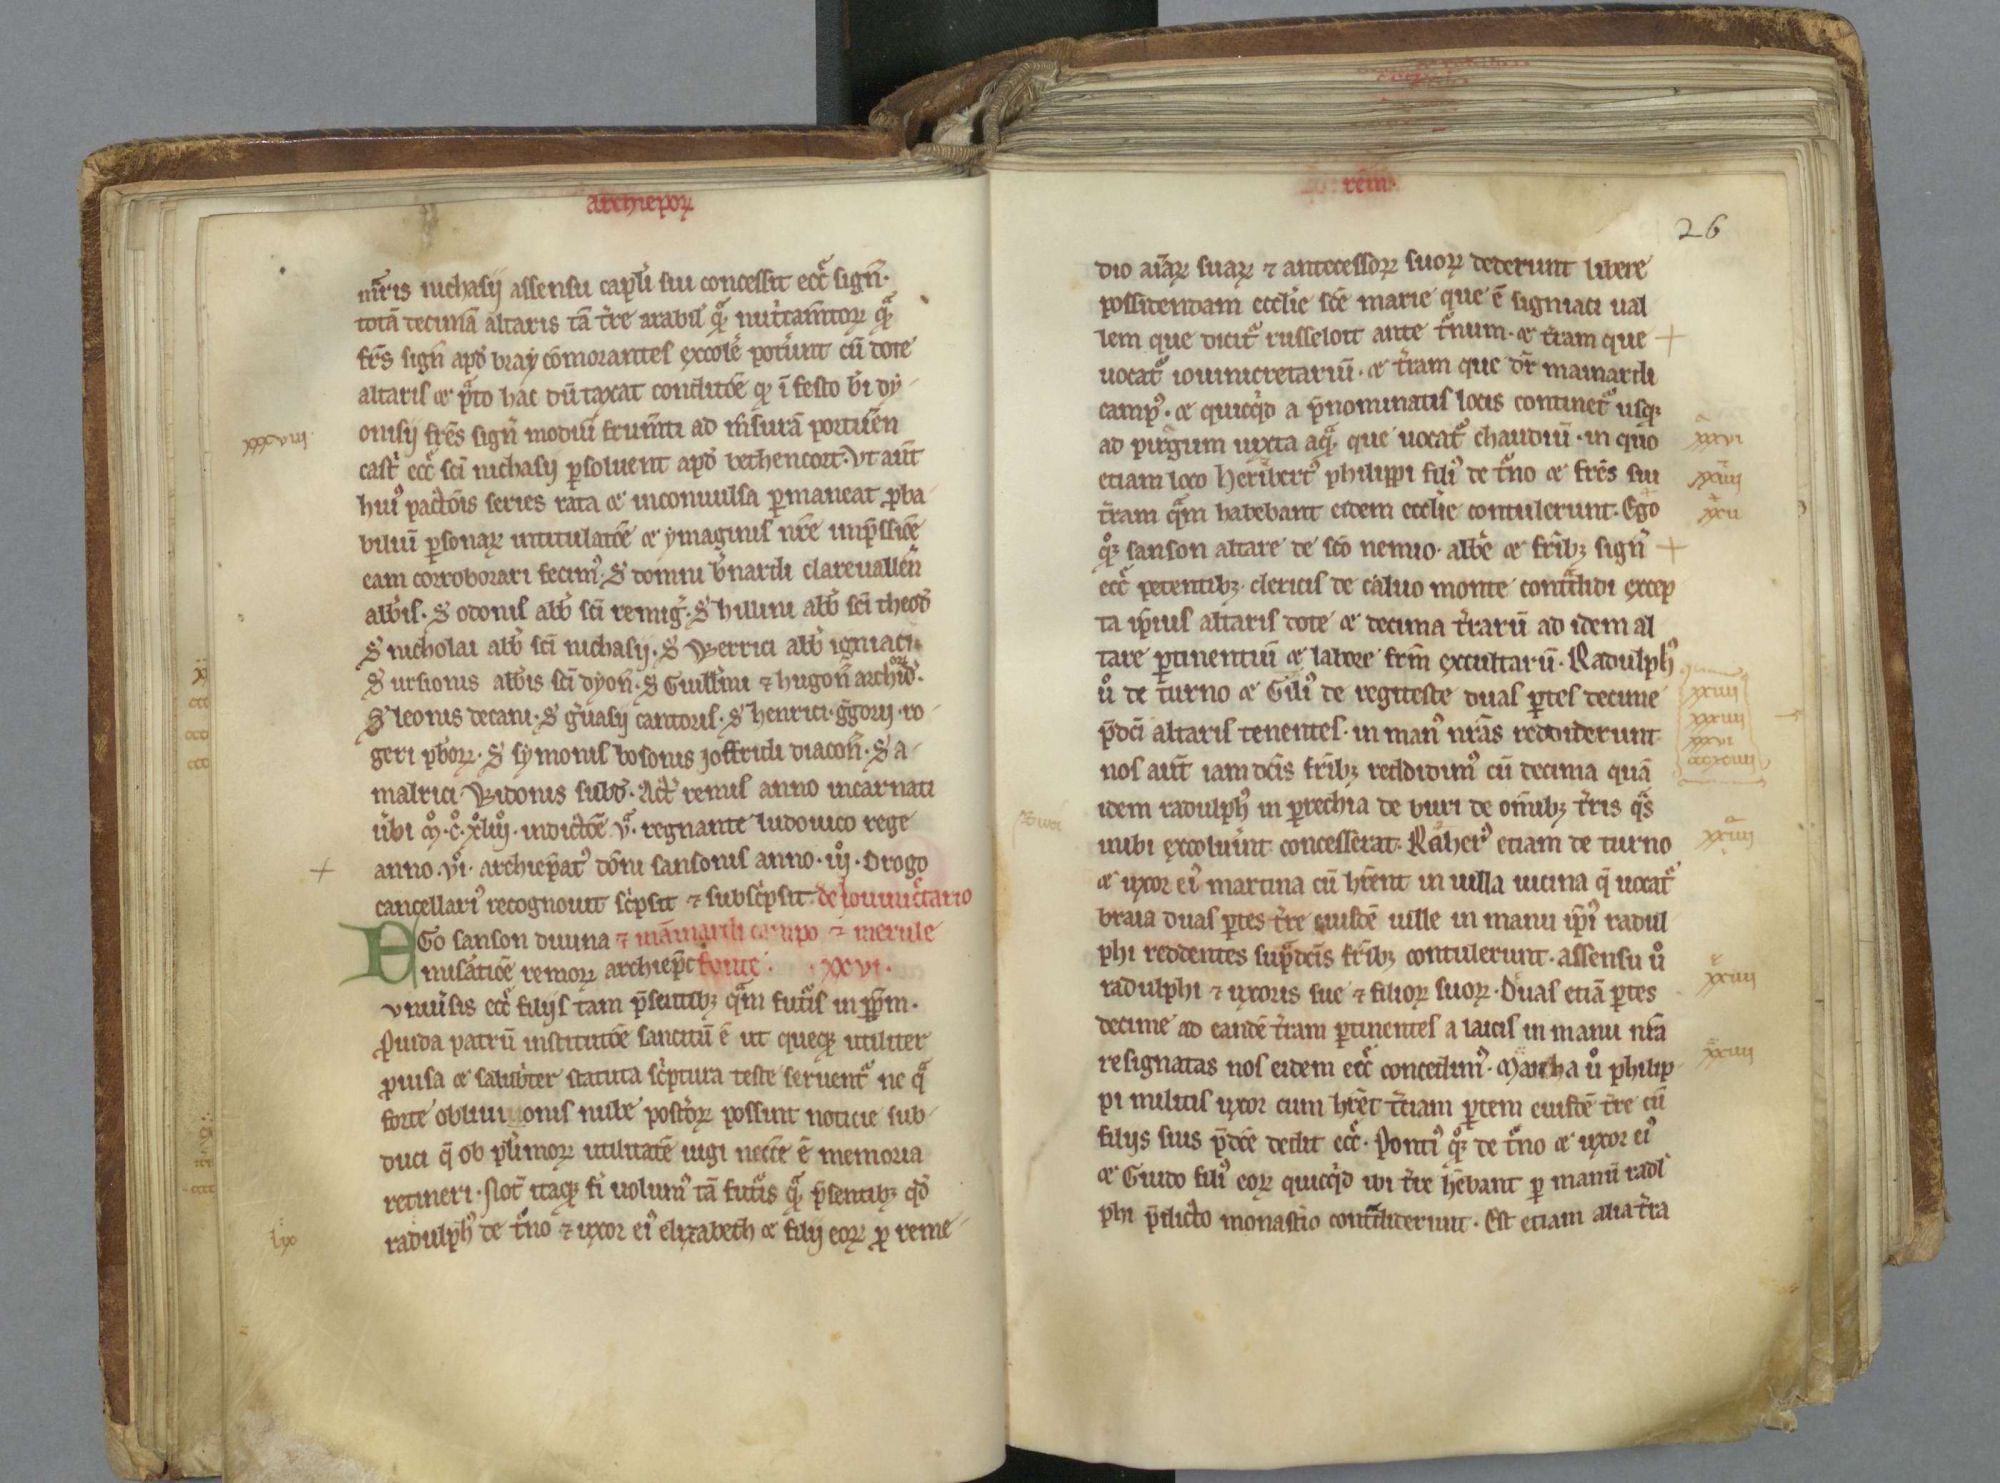 archiepoꝝ
nr̃is nichasij assensu capl̓i sui concessit eccł̓ sign̄·
totā decimā altaris tā tr̃e arabił q̄ȝ nutrimtoꝝ q̄ȝ
fr̃s sign̄ apđ bray cōmorantes excolē pot̓unt cū dote
altaris ⁊ p̄to hac dūtaxat conditōe qͥ ī festo bī dy-
onisij fr̃s sign̄ modiū frumti ad m̄surā portuēn
cast̓ eccł̓ sc̄i nichasij ꝑsoluent apđ bethencort. Vt aut̄
huiꝰ pactōis series rata ⁊ inconuulsa ꝑmaneat ꝓba
biliū ꝑsonaꝝ intitulatōe ⁊ ymaginis nr̄e imp̄ssiōe
eam corroborari fecimꝰ. S̓ domni b̓nardi clareuallen̄
abb̓is. S̓ odonis abb̓ sc̄i remig̓. S̓ hilluni abb̓ sc̄i theod̓
S̓ nicholai abb̓ sc̄i nichasij. S̓ Werrici abb̓ igniaci.
S̓ ursionis abb̓is sc̄i dyon̄. S̓ Guillm̄i ⁊ hugon̄ archid̓.
S̓ leonis decani. S̓ g̓uasij cantoris. S̓ henrici. g̓gorij. ro-
geri p̓b̓roꝝ. S̓ symonis bosonis joffridi diacon̄. S̓ a-
malrici Widonis subd̓. Act̓ remis anno incarnati
ūbi .M̊.C̊.xl̊iij. indictōe vͣ. regnante ludouico rege
anno .vi̊. archiep̄atꝰ dōni sansonis anno .iiij̊. Drogo
cancellariꝰ recognouit sc̓psit ⁊ subsc̓psit. de Jouinic̄tario
EGo sanson diuina ⁊ mainardi campo ⁊ merule
misatiōe remoꝝ archiep̄c fonte. .xxvi.
vniūsis eccł̓ filijs tam p̄sentibȝ q̄m futis in ꝑpm̄.
Prouida patrū institutōe sancitū ē ut quequȝ utiliter
ꝓuisa ⁊ salubr̓ter statuta sc̓ptura teste seruentr̓ ne qͣ
forte obliuionis nube post̓oꝝ possint noticie sub-
duci q̄ ob pl̓imoꝝ utilitatē iugi neccē ē memoria
retineri. Not̄ itaqȝ fi̓ uolumꝰ tā futis q̄ȝ p̄sentibȝ qđ
radulphꝰ de t̓no ⁊ uxor eiꝰ elizabeth ⁊ filij eoꝝ ꝑ reme-
xxxviij
lxo
rem̄.
26
dio aīaꝝ suaꝝ ⁊ antecessoꝝ suoꝝ dederunt libere
possidendam eccl̓ie sc̄e marie que ē signiaci ual
lem que dicit̓ russeloit ante t̓num. ⁊ tr̄am que
uocat̓ iouinicretariū. ⁊ tr̄am que dr̄ mainardi
campꝰ. ⁊ quicq̓d a p̄nominatis locis continet̓ usqȝ
ad pirgum iuxta aqͣȝ que uocat̓ chaudiū. in quo
etiam loco heribertꝰ philippi filiꝰ de t̓no ⁊ fr̃s sui
tr̄am q̄m habebant eidem eccl̓ie contulerunt. Ego
q̊ȝ sanson altare de sc̄o nemio. abb̓e ⁊ fr̄ibȝ sign̄
eccł̓ petentibȝ. clericis de caluo monte contradidi excep
ta ip̄ius altaris dote ⁊ decima tr̄arū ad idem al
tare ꝑtinentiū ⁊ labore frm̄ excultarū. Radulphꝰ
ů de turno ⁊ Giliꝰ de regiteste duas ꝑtes decime
p̄dc̄i altaris tenentes. in manꝰ nr̄as reddiderunt.
nos aut̄ iamdc̄is fr̄ibȝ reddidimꝰ cū decima quā
idem radulphꝰ in ꝑrechia de buri de om̄ibȝ tr̄is qͣs
inibi excoluīnt concesserat. Raherꝰ etiam de turno
⁊ uxor eiꝰ martina cū hr̄ent in uilla uicina q̄ uocat̓
braia duas ꝑtes tr̄e eiusdē uille in manu ip̄iꝰ radul
phi reddentes sup̄dc̄is fr̄ibȝ contulerunt. assensu ů
radulphi ⁊ uxoris sue ⁊ filioꝝ suoꝝ. Duas etiā ꝑtes
decime ad eandē tr̄am ꝑtinentes a laicis in manu nr̄a
resignatas nos eidem eccł̓ concedimꝰ. Martha ů philip
pi militis uxor cum hr̄et tr̄ciam ꝑtem eiusdē tr̄e cū
filijs suis p̄dc̄e dedit eccł̓. Pontiꝰ q̊ȝ de t̓no ⁊ uxor eiꝰ
⁊ Guido filiꝰ eoꝝ quicq̓d ibi tr̄e hēbant ꝑ manū radl̓
phi p̄dicto monast̓io contradiderunt. Est etiam alia tr̄a
xxvi
xxiiij
xxii
xxiiij
xxxiiij
xxvi
xxiiij
xxiiij
xxiiij